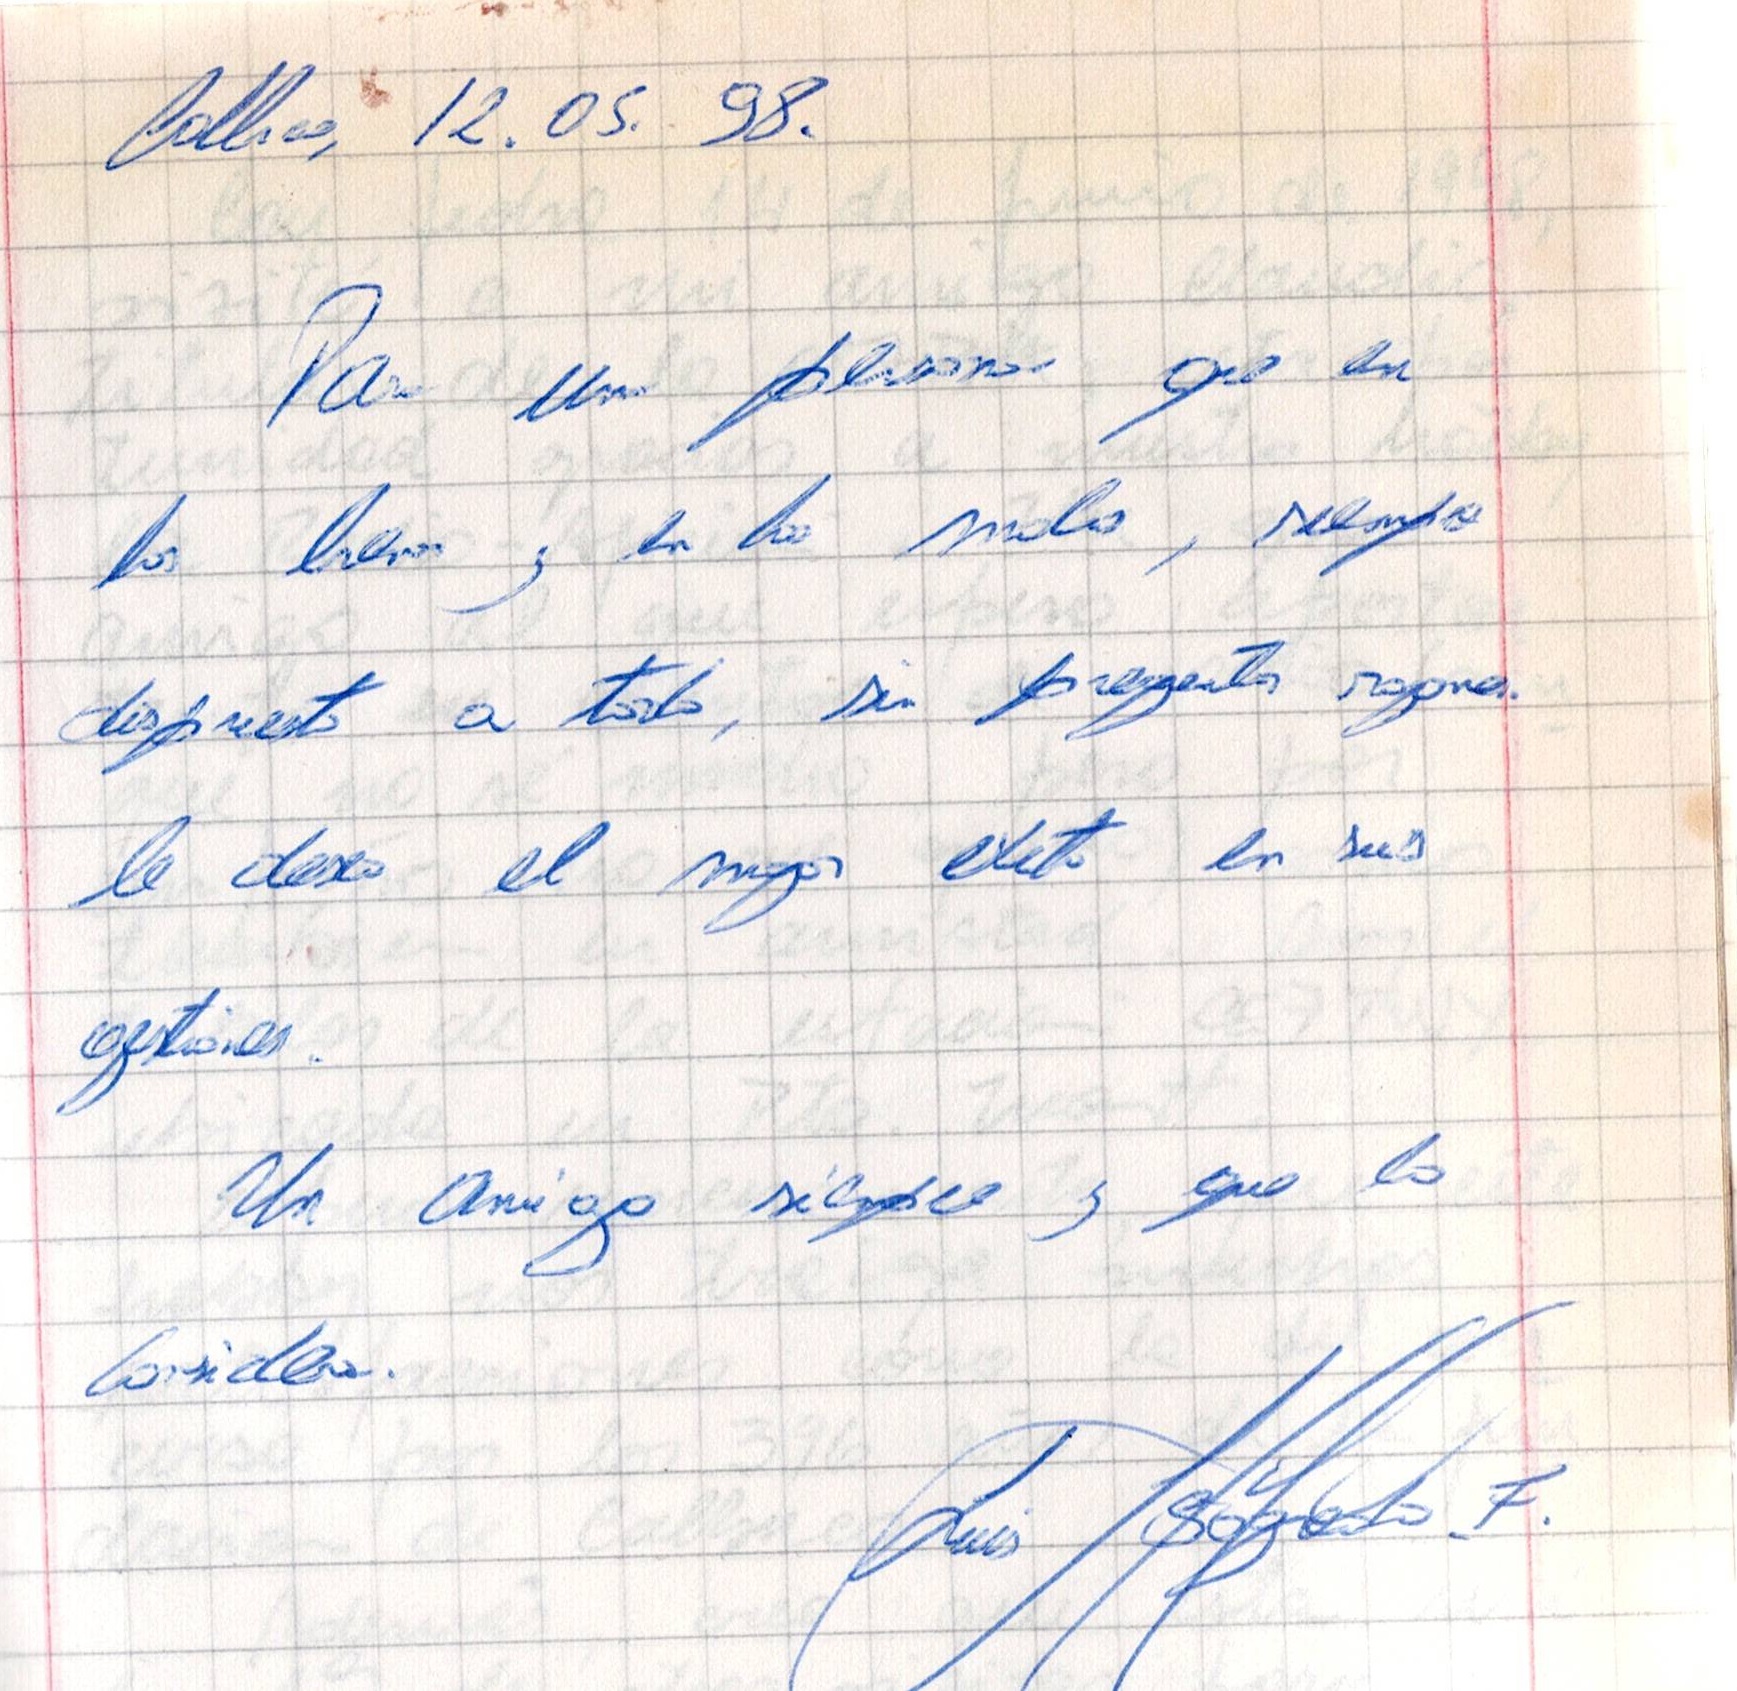 Collico, 12.05.98.
Para una persona que en
los buenos y en los malos, siempre
dispuesto a todo, sin preguntar razones.
le deseo el mejor exito en sus
gestiones.
Un amigo siempre y que lo
considera.
Luis F.